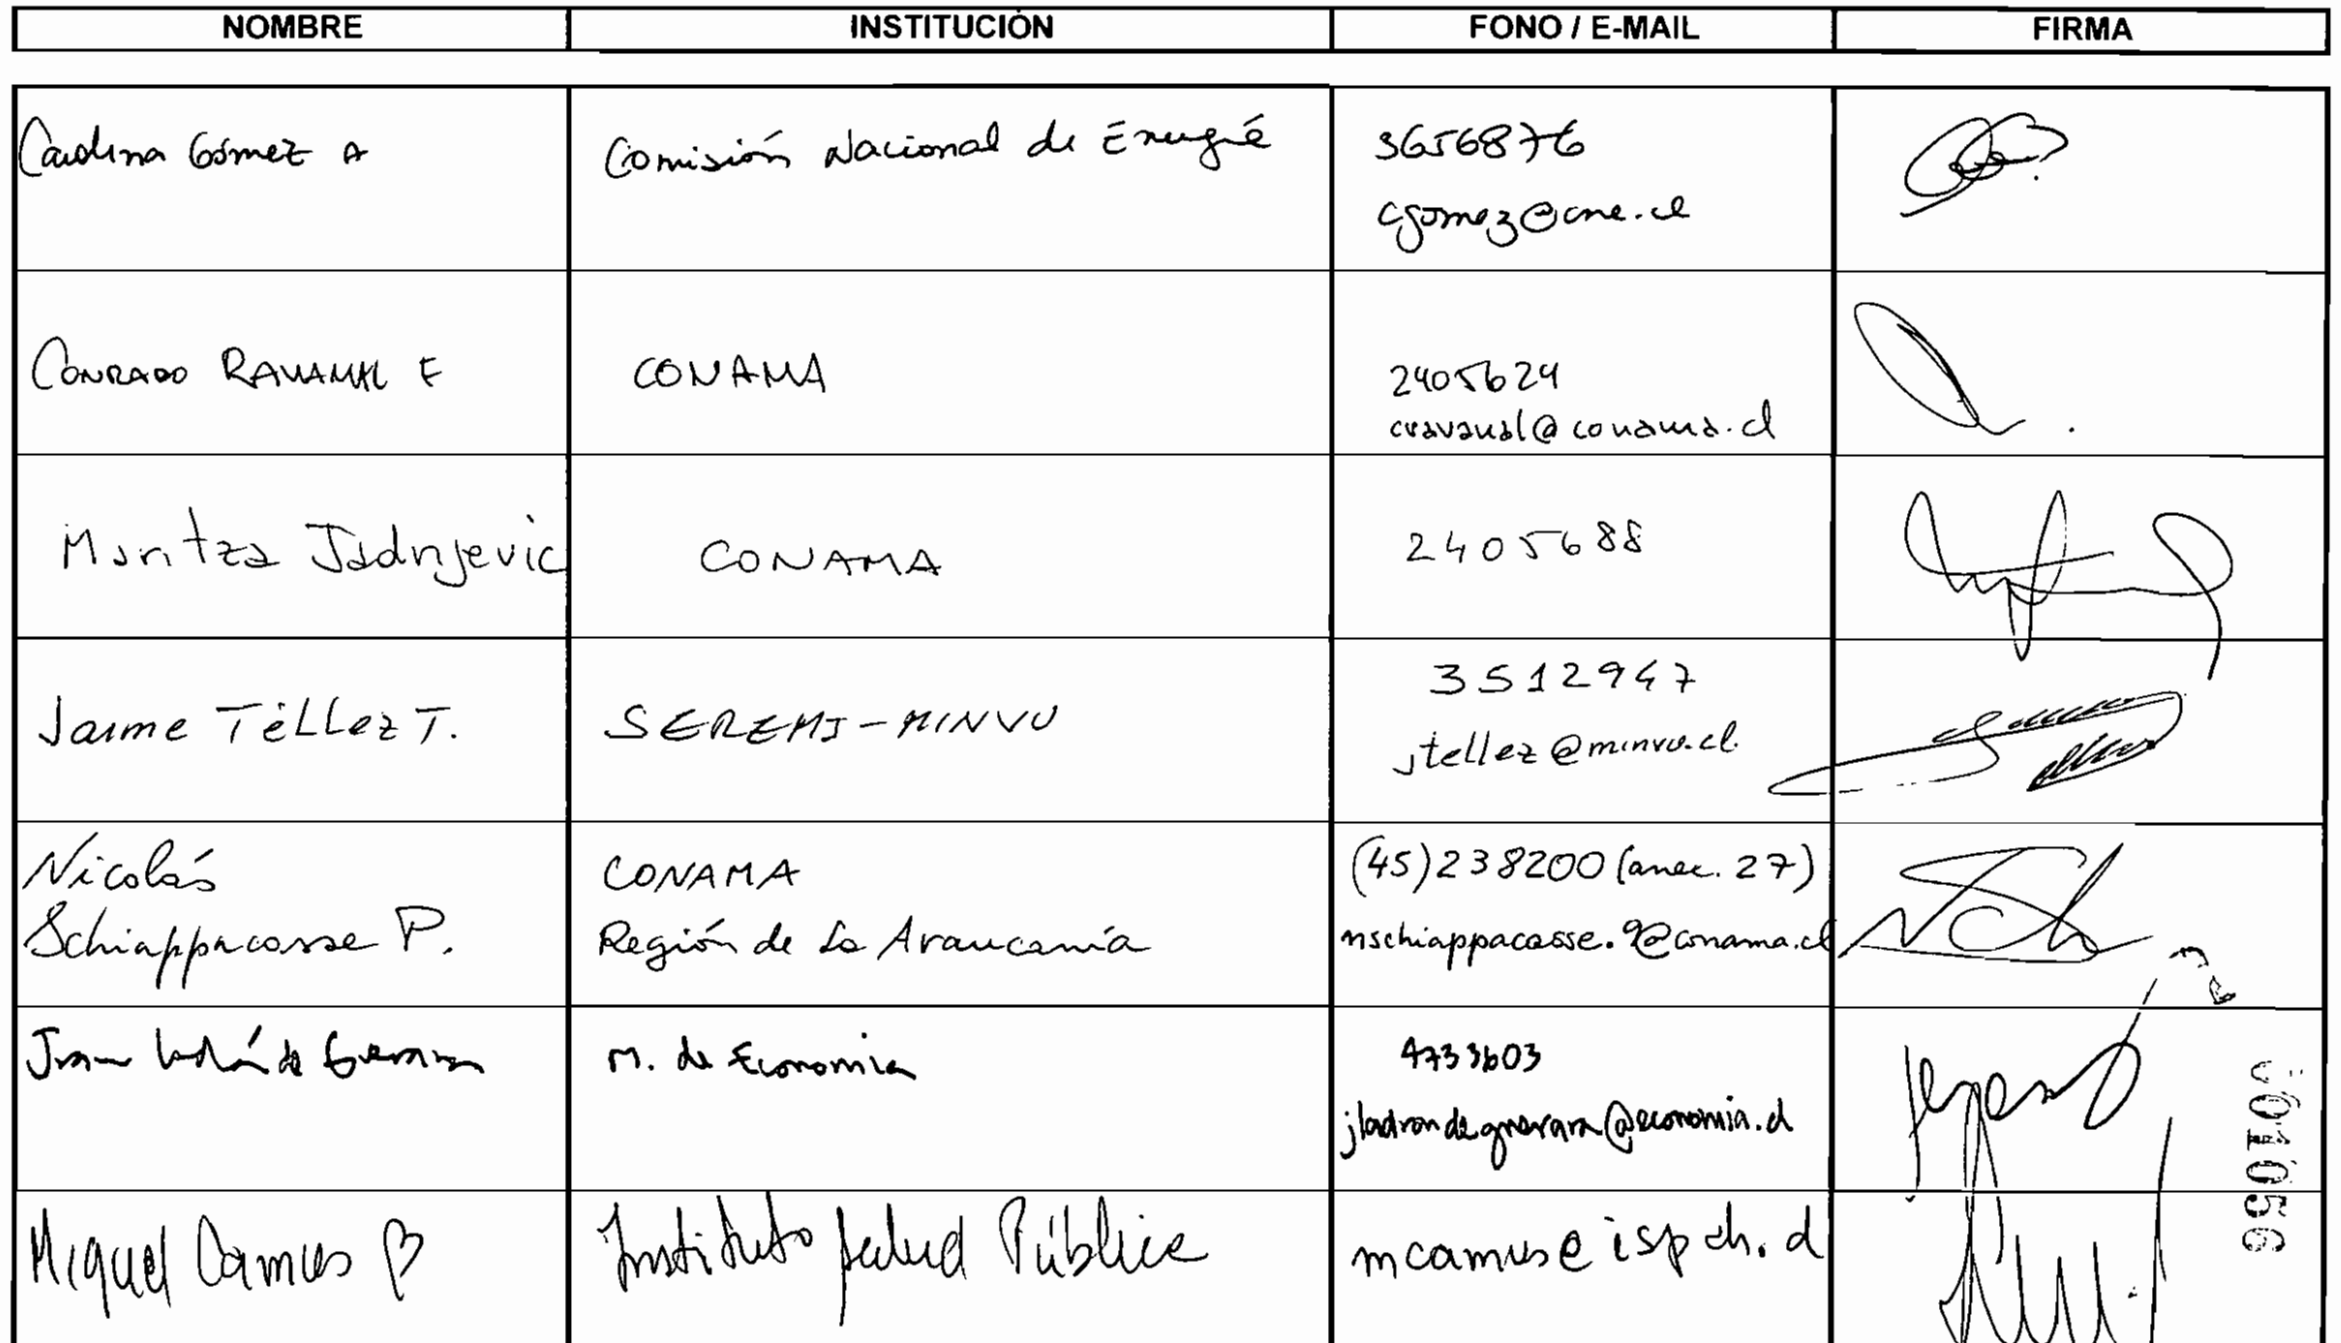 NOMBRE INSTITUCIÓN FONO / E-MAIL FIRMA
Carolina Gómez A Comisión Nacional de Energía 3656876
cgomez@cne.cl
CONRADO RAVANAL F CONAMA 2405624
cravanal@conama.cl
Maritza Jadrijevic CONAMA 2405688
Jaime TéLLez T. SEREMI-MINVU 3512947
jtellez@minvu.cl
Nicolás CONAMA (45)238200 (anex. 27)
Schiappacasse P. Región de La Araucanía nschiappacasse.9@conama.cl
Juan Ladrón de Guevara M. de Economia 4733603
jladrondeguevara@economia.cl
Miguel Camus B Instituto Salud Pública mcamus@ispch.cl
001056